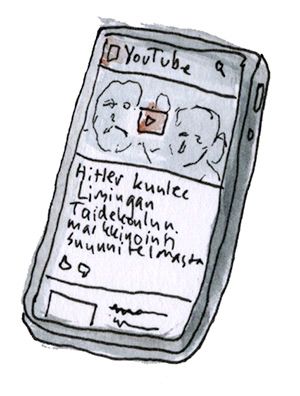 YouTube
Hitler kuulee
Limingan
Taidekoulun
markkinointi
suunnitelmasta